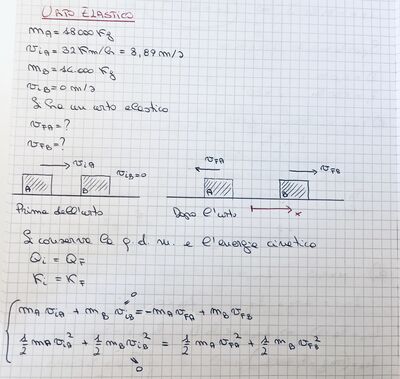 URTO ELASTICO
mA = 18000 Kg
viA = 32 Km/h = 8,89 m/s
mB = 14.000 Kg
viB = 0 m/s
Si ha un urto elastico
vFA = ?
vFB = ?
viA viB = 0 vFA vFB
A B A B
x
Prima dell'urto Dopo l'urto
Si conserva la q. d. m. e l'energia cinetica
Qi = QF
Ki = KF
0
mA viA + mB viB = -mA vFA + mB vFB
1/2 mA viA² + 1/2 mB viB² = 1/2 mA vFA² + 1/2 mB vFB²
0